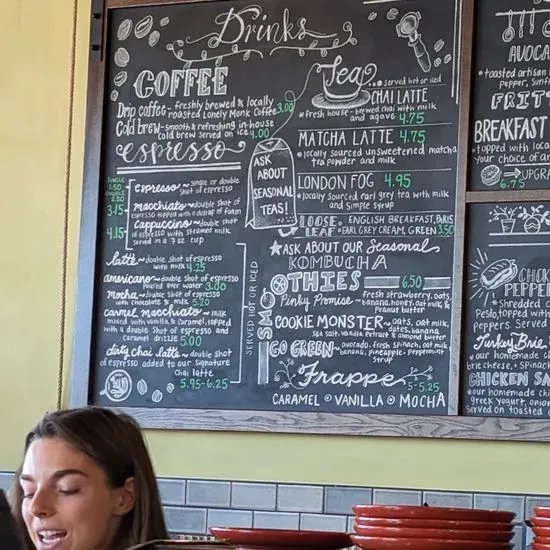 Drinks
COFFEE
Drip coffee - freshly brewed & locally
roasted Lonely Monk Coffee 3.00
Cold brew - smooth & refreshing in-house
cold brew served on ice 4.00
espresso
SINGLE
1.50
DOUBLE
2.50
espresso ~ single or double
shot of espresso
3.15
macchiato ~ double shot of
espresso topped with a dollop of foam
4.15
Cappuccino ~ double shot
of espresso with steamed milk
served in a 7 oz cup
latte ~ double shot of espresso
with milk 4.25
americano ~ double shot of espresso
poured over water 3.00
mocha ~ double shot of espresso
with chocolate & milk 5.20
carmel macchiato ~ milk
mixed with vanilla & caramel, topped
with a double shot of espresso and
caramel drizzle 5.00
dirty chai latte ~ double shot
of espresso added to our signature
chai latte
5.95-6.25
SERVED HOT OR ICED
ASK
ABOUT
SEASONAL
TEAS!
Tea
served hot or iced
CHAI LATTE
fresh house-brewed chai with milk
and agave 4.75
MATCHA LATTE 4.75
locally sourced unsweetened matcha
tea powder and milk
LONDON FOG 4.95
locally sourced earl grey tea with milk
and simple syrup
LOOSE LEAF
ENGLISH BREAKFAST, PARIS
EARL GREY CREAM, GREEN 3.50
ASK ABOUT OUR Seasonal
KOMBUCHA
SMOOTHIES
6.50
Pinky Promise ~ fresh strawberry, oats,
banana, honey, oat milk, &
peanut butter
COOKIE MONSTER ~ oats, oat milk,
dates, banana,
sea salt, vanilla extract & almond butter
GO GREEN ~ avocado, fresh spinach, oat milk,
banana, pineapple, peppermint
syrup
Frappe
5-5.25
CARAMEL VANILLA MOCHA
AVOCA
toasted artisan
pepper, Sunf
FRITT
BREAKFAST
topped with loca
your choice of ar
UPGRA
6.75
CHICK
PEPPE
shredded c
Pesto, topped with
peppers served
Turkey Brie
our homemade ch
brie cheese, + spinac
CHICKEN SA
our homemade chi
greek yogurt, onion
served on toasted